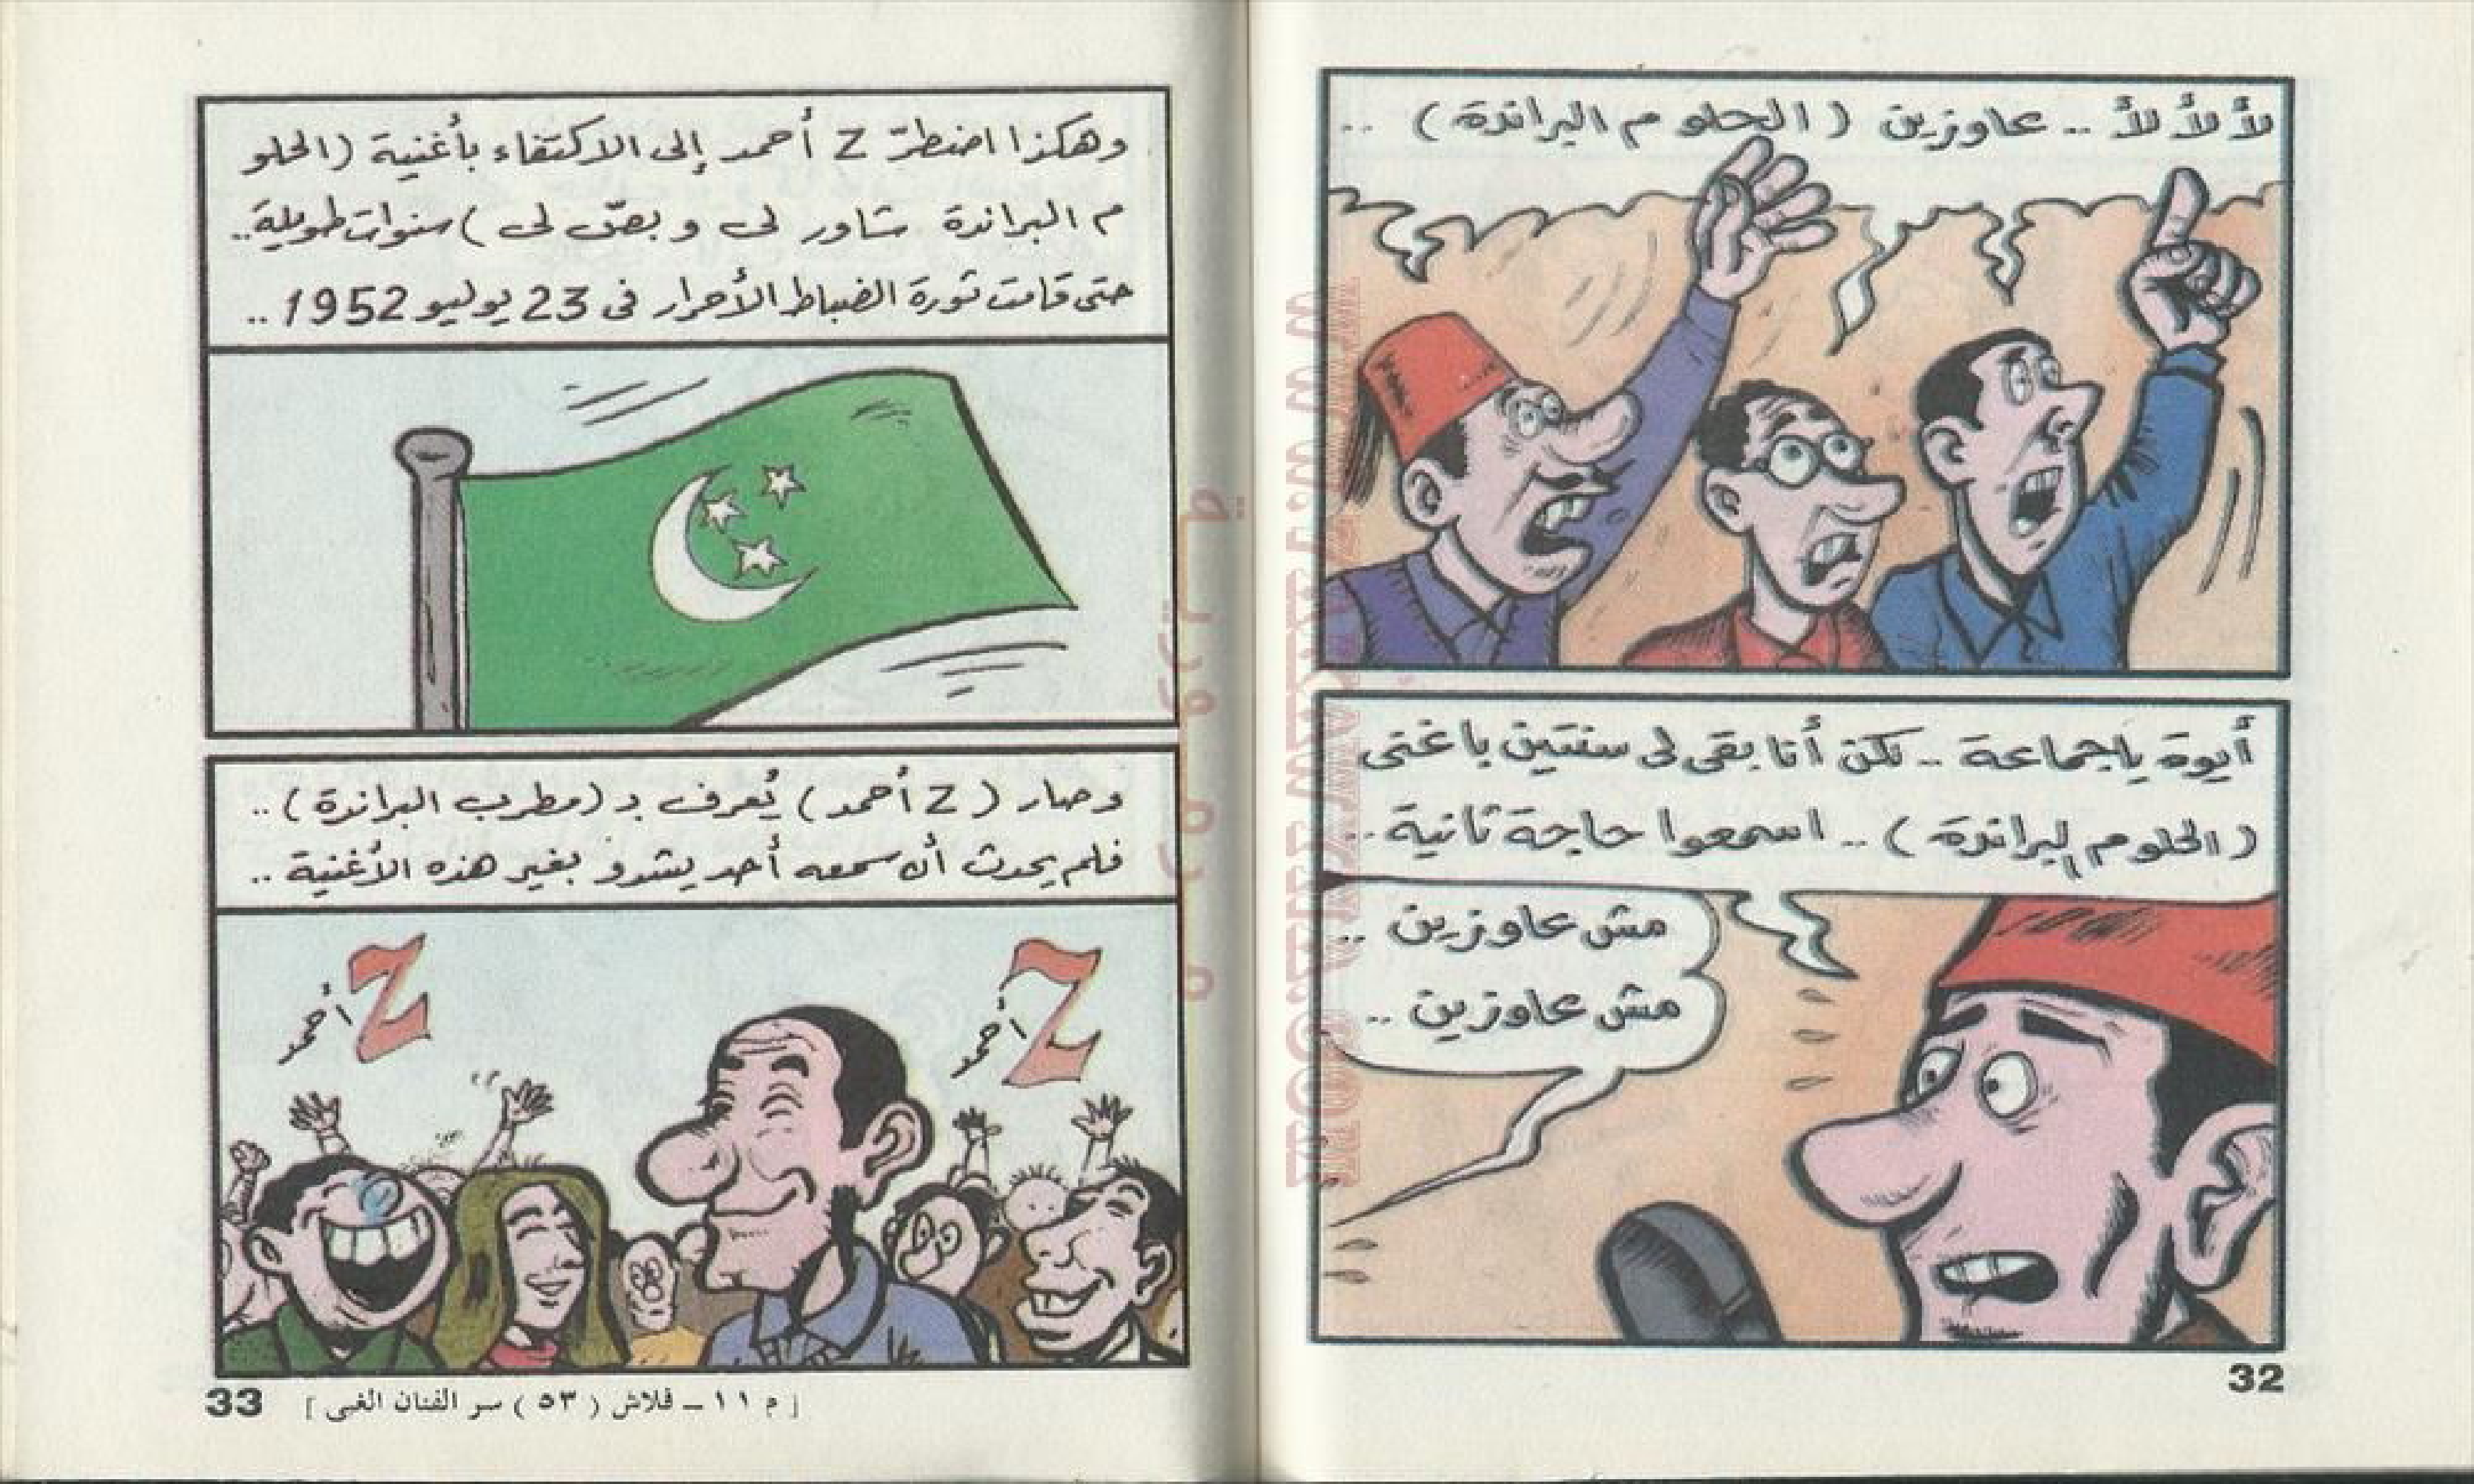 لأ لأ لأ .. عاوزين ( الحلو م البراندة ) ..
أيوة ياجماعة .. لكن أنا بقى لى سنتين باغنى
( الحلو م البراندة ) .. اسمعوا حاجة تانية ..
مش عاوزين ..
مش عاوزين ..
32
وهكذا اضطرّ Z أحمد إلى الاكتفاء بأغنية (الحلو
م البراندة شاور لى و بصّ لى ) سنوات طويلة ..
حتى قامت ثورة الضباط الأحرار فى 23 يوليو 1952 ..
وصار ( Z أحمد ) يُعرف بـ (مطرب البراندة ) ..
فلم يحدث أن سمعه أحد يشدو بغير هذه الأغنية ..
Z أحمد
Z أحمد
33
[ م ١١ – فلاش ( ٥٣ ) سر الفنان الغبى ]